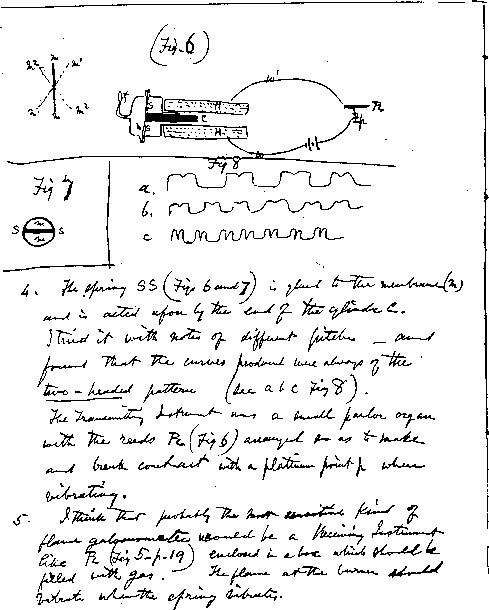 (Fig. 6)
Fig 8
Fig 7
a.
b.
c
S S
4. The spring SS (Figs 6 and 7) is glued to the membrane (m)
and is acted upon by the end of the cylinder C.
I tried it with notes of different pitches — and
found that the curves produced were always of the
two-headed pattern (see a b c Fig 8).
The Transmitting Instrument was a small parlor organ
with the reeds R (Fig 6) arranged so as to make
and break contact with a platinum point p when
vibrating.
5. I think that probably the most sensitive kind of
flame galvanometer would be a Receiving Instrument
like R (Fig 5-p-19) enclosed in a box which should be
filled with gas. The flame at the burner should
vibrate when the spring vibrates.